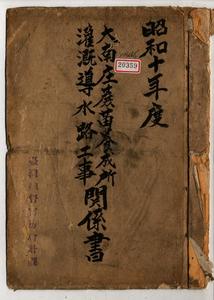 昭和十年度
20359
大南庄蔗苗養成所
灌漑導水路工事
関係書